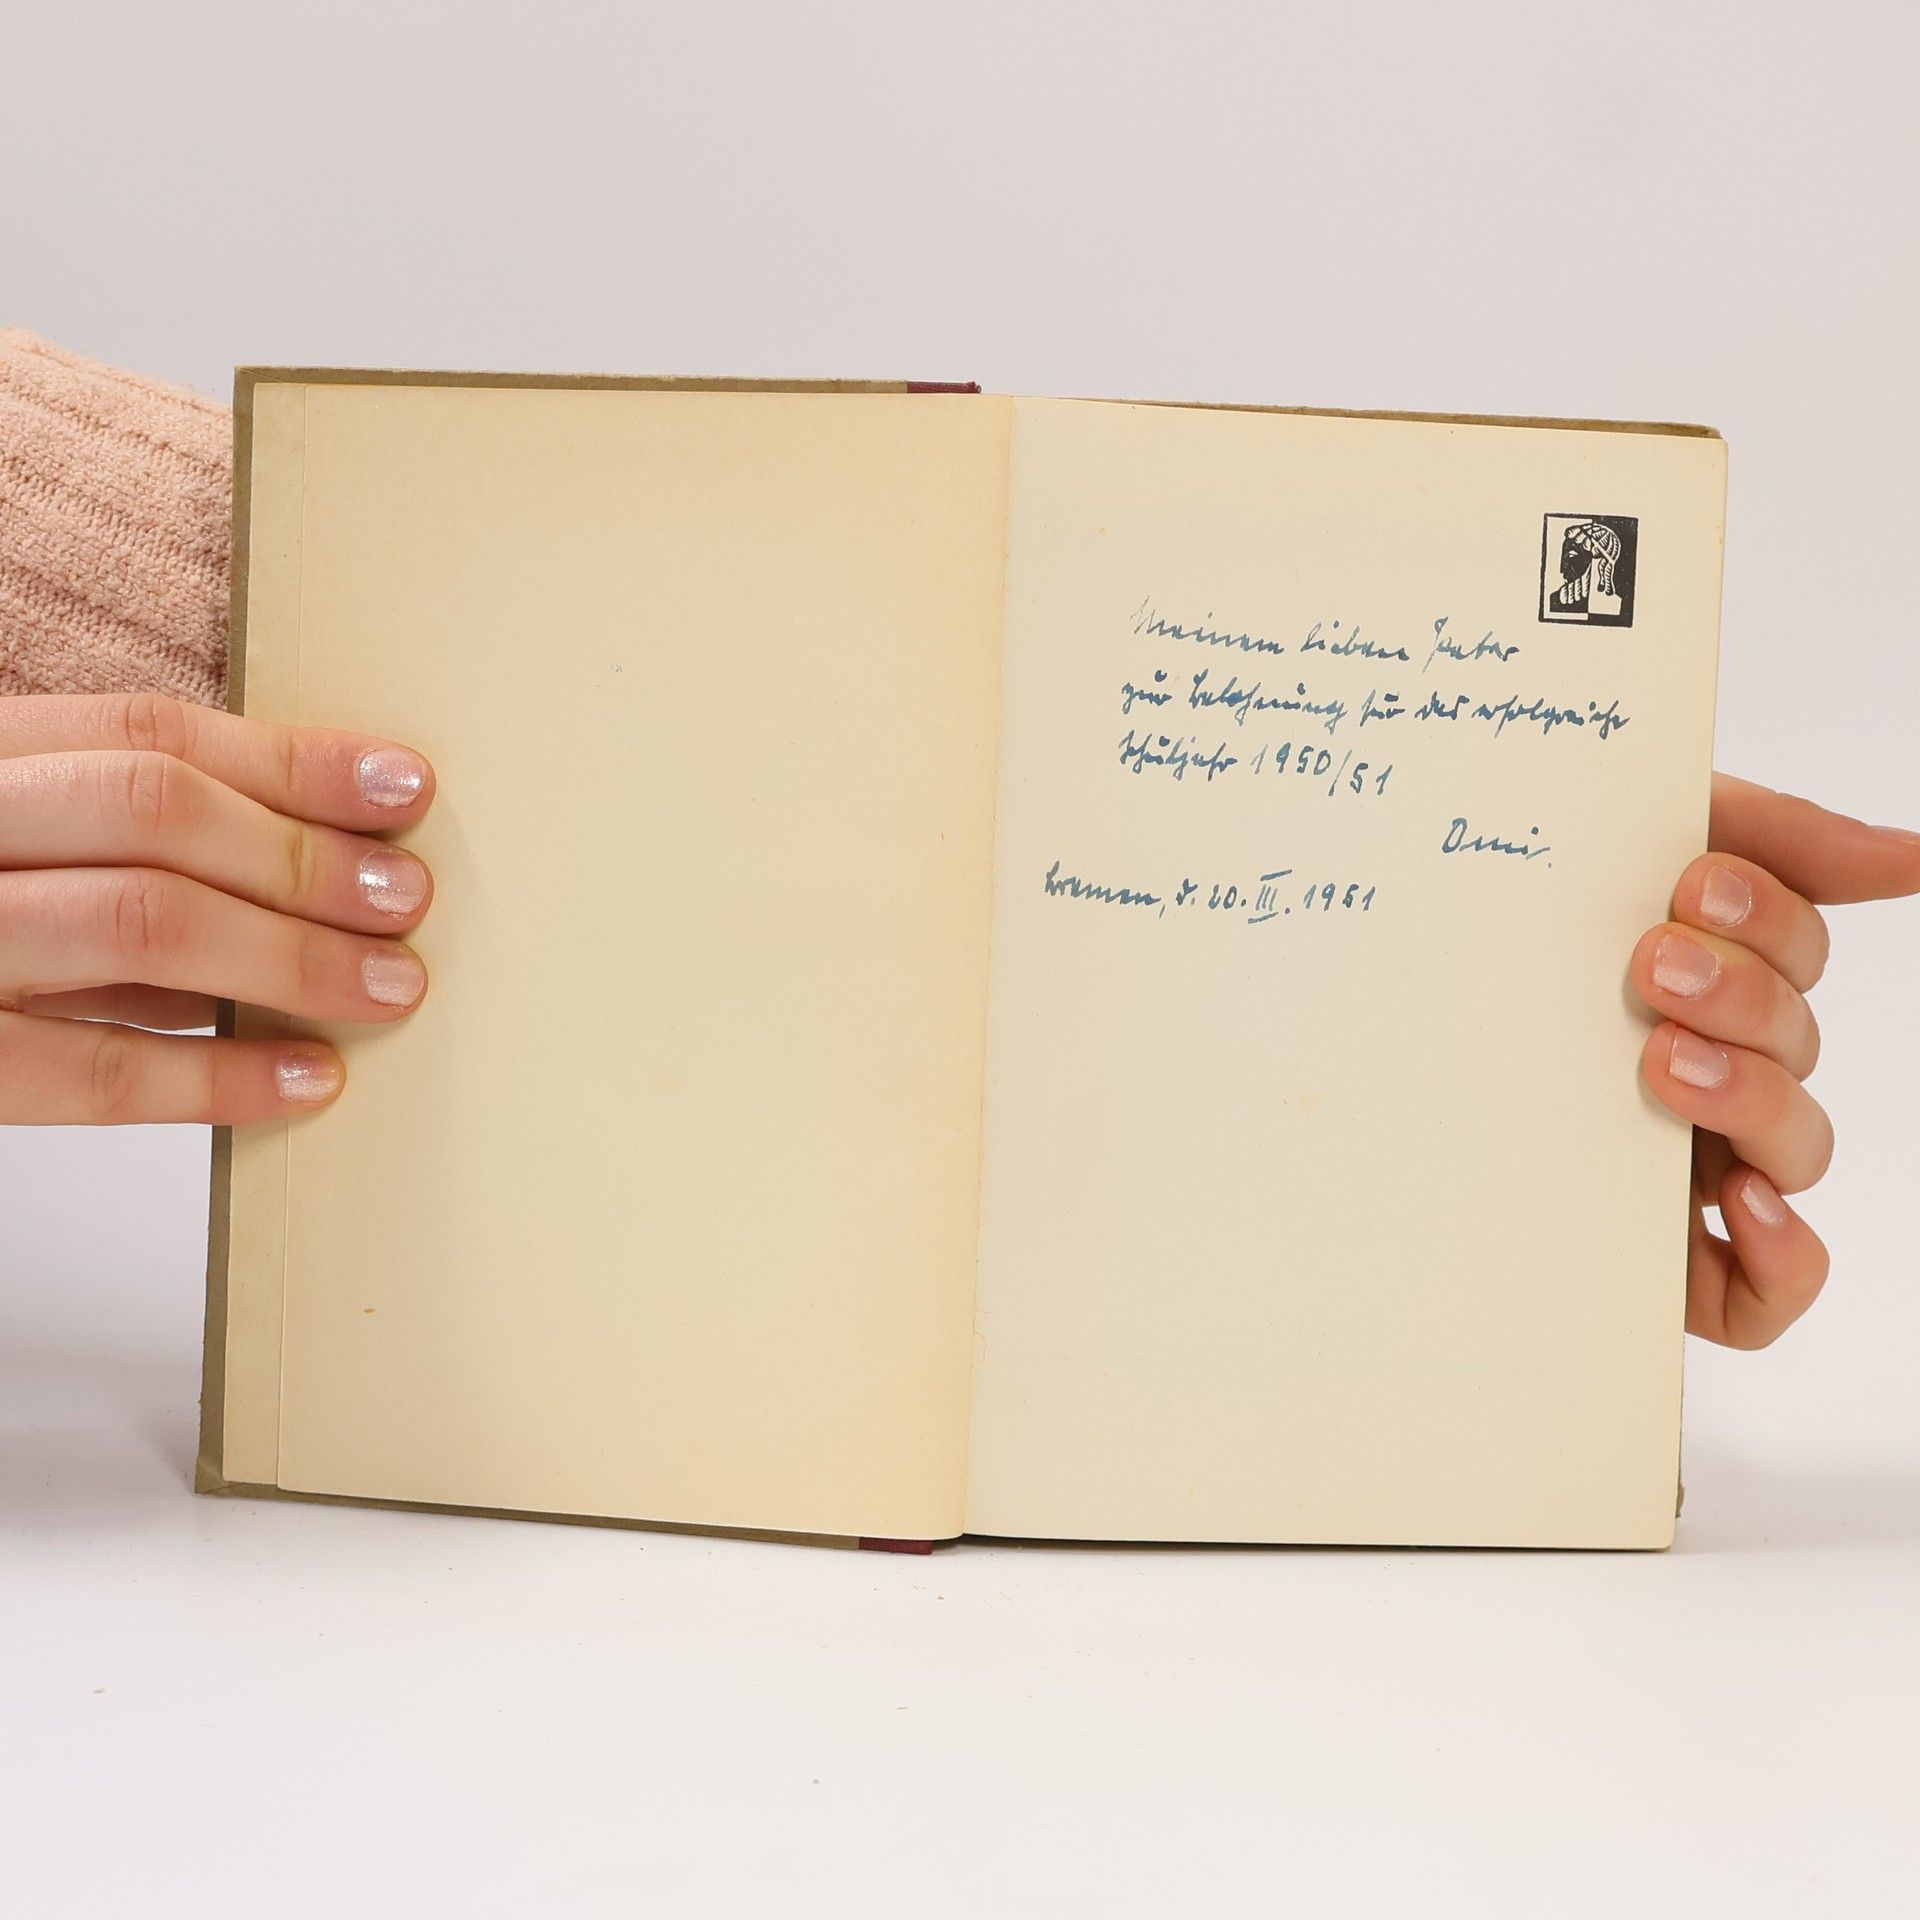 Meinem lieben Peter
zur Belohnung für das erfolgreiche
Schuljahr 1950/51
Omi.
Bremen, d. 20. III. 1951